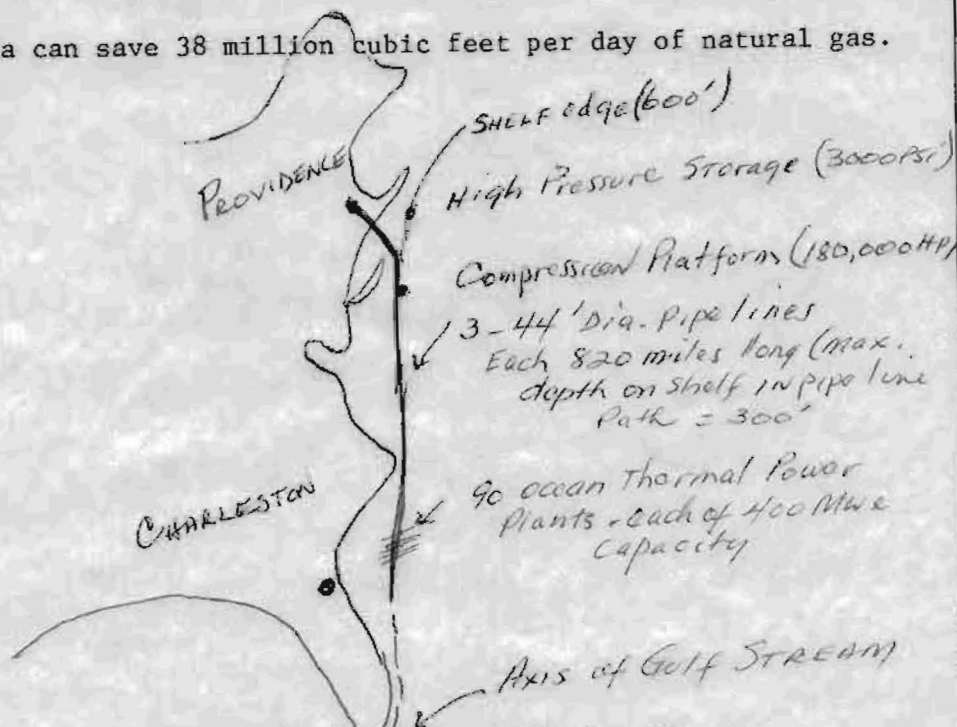 a can save 38 million cubic feet per day of natural gas.
SHELF edge (600')
PROVIDENCE
High Pressure Storage (3000PSi)
Compression Platform (180,000HP)
3-44' Dia. Pipe lines
Each 820 miles long (max.
depth on shelf in pipe line
Path = 300'
CHARLESTON
90 ocean Thermal Power
Plants - each of 400 Mwe
capacity
Axis of Gulf STREAM